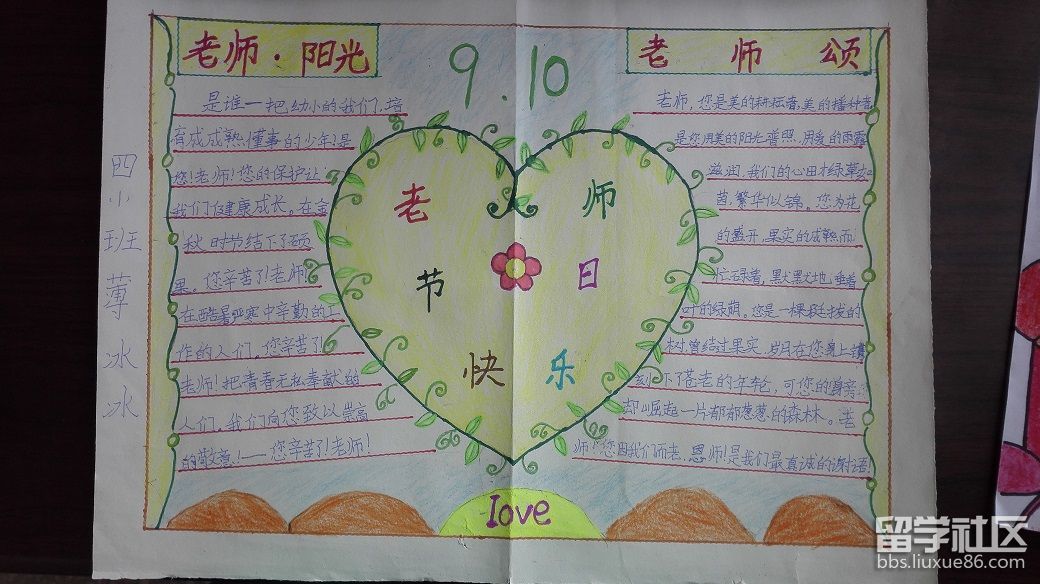 老师·阳光
是谁一把幼小的我们,培
育成成熟懂事的少年!是
您!老师!您的保护让
我们健康成长。在金
秋时节结下了硕
果。您辛苦了!老师!
在酷暑严寒中辛勤的工
作的人们。您辛苦了!
老师!把青春无私奉献给
人们。我们向您致以崇高
的敬意!——您辛苦了!老师!
四小班薄冰冰
9.10
老师
节日
快乐
love
老师颂
老师,您是美的耕耘者,美的播种者
是您用美的阳光普照,用爱的雨露
滋润,我们的心田才绿草如
茵,繁华似锦。您为花
的盛开,果实的成熟而
忙碌着,默默地垂着
叶的绿荫。您是一棵挺拔的
树曾结过果实,岁月在您身上镌
刻下了苍老的年轮,可您的身旁
却崛起一片郁郁葱葱的森林。老
师!您因我们而老,恩师!是我们最真诚的谢语!
留学社区
bbs.liuxue86.com